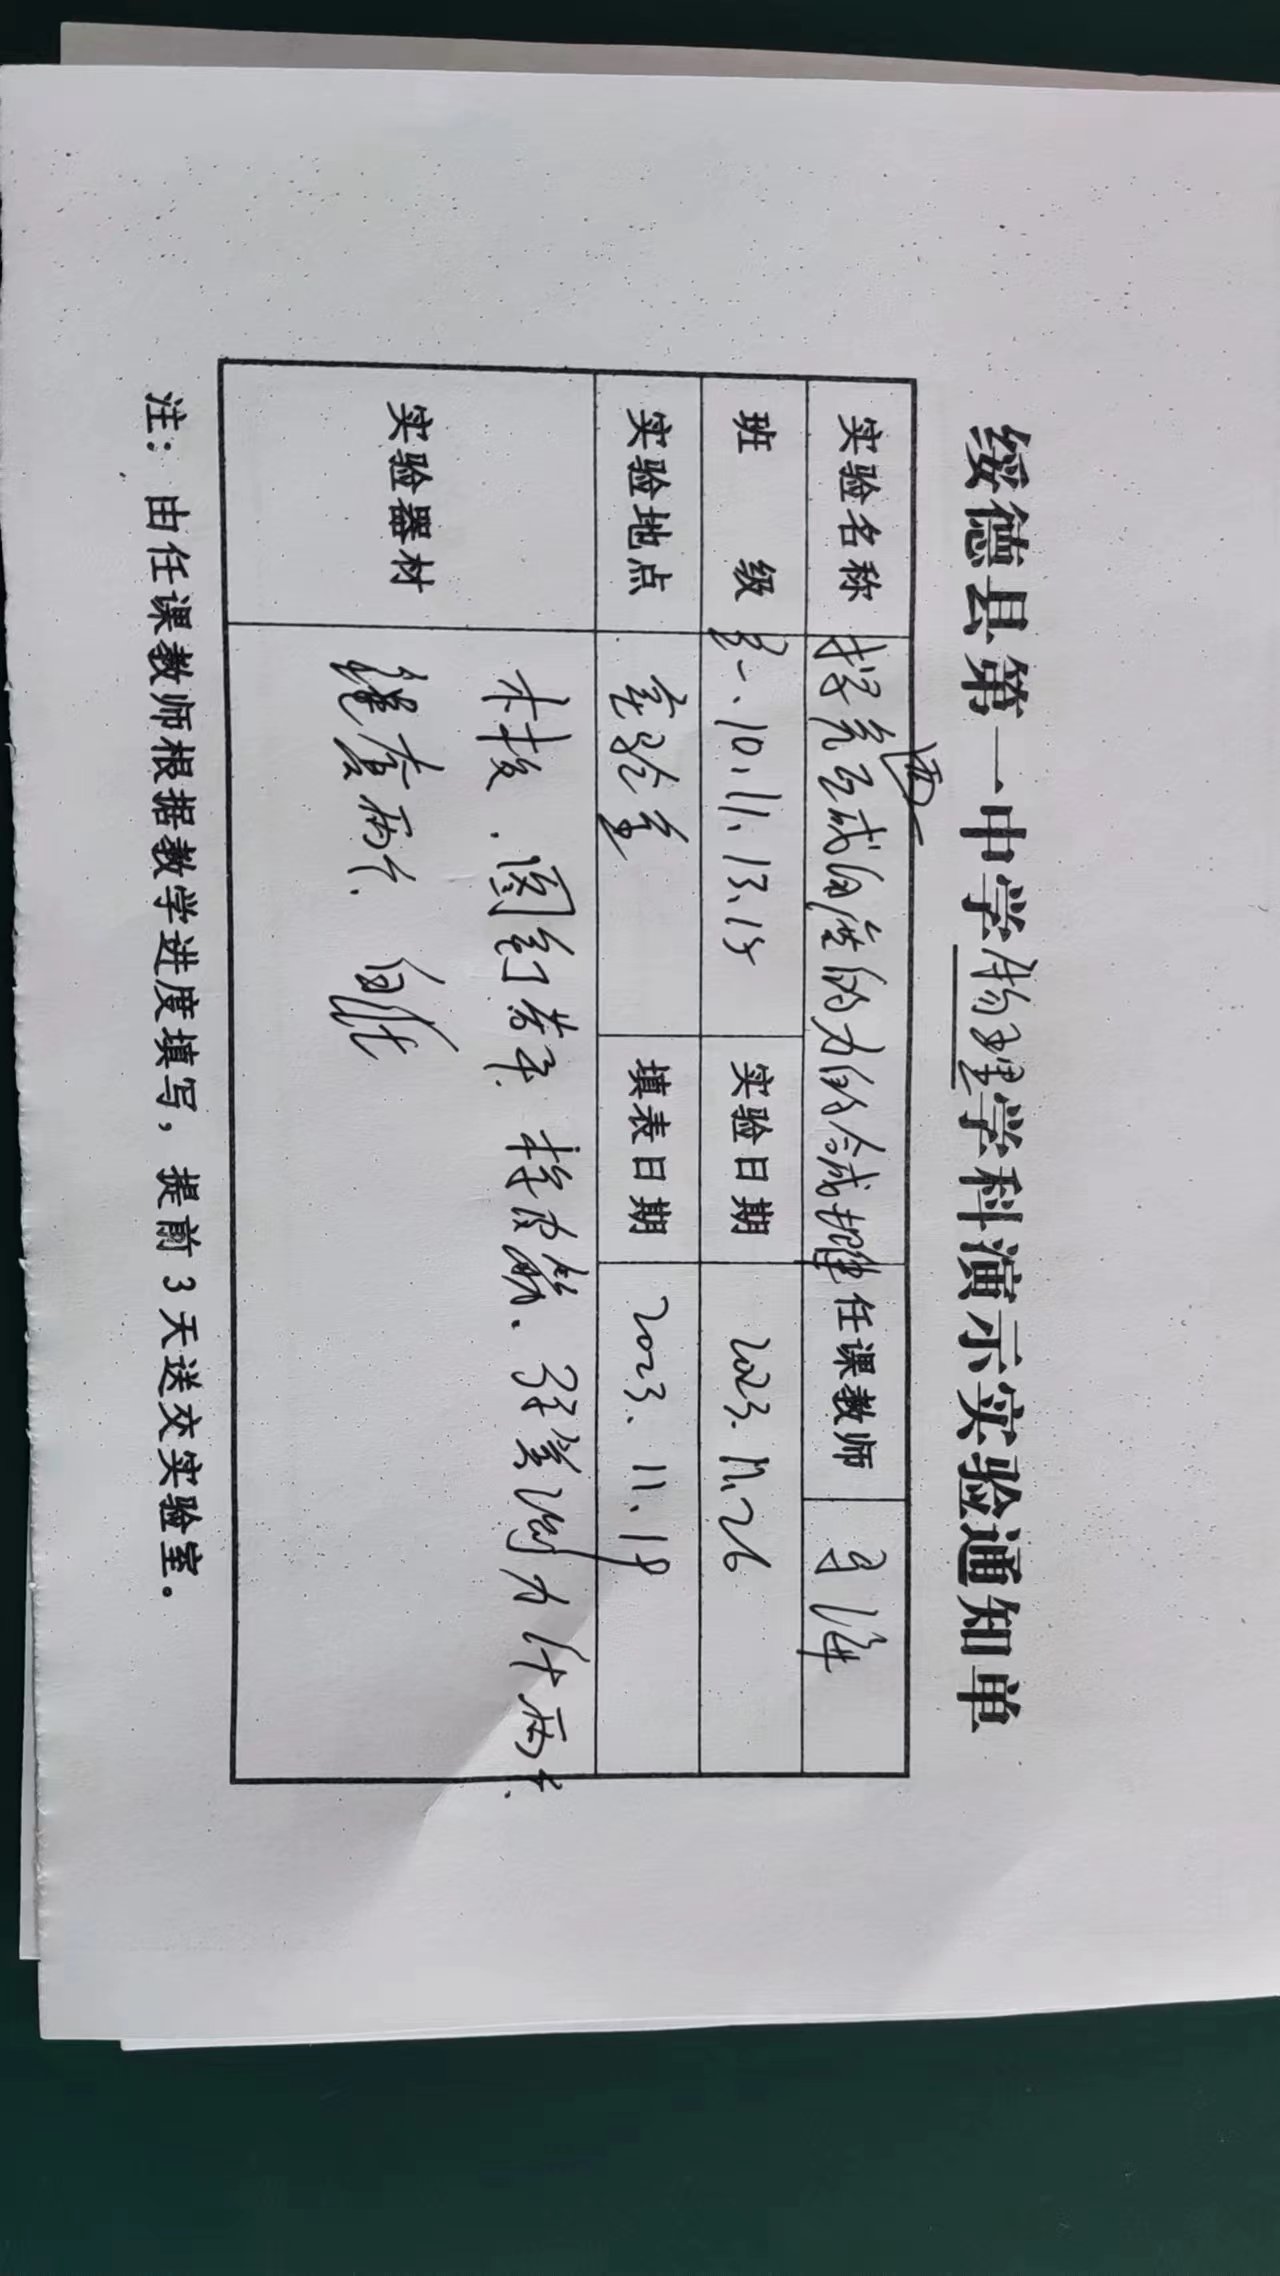 绥德县第一中学物理学科演示实验通知单
实验名称 探究两互成角度的力的合成规律 任课教师 马海
班级 高一、10、11、13、15 实验日期 2023.11.26
实验地点 实验室 填表日期 2023.11.18
实验器材 木板、图钉若干、橡皮筋、弹簧测力计两个、
绳套两个、白纸
注：由任课教师根据教学进度填写，提前3天送交实验室。